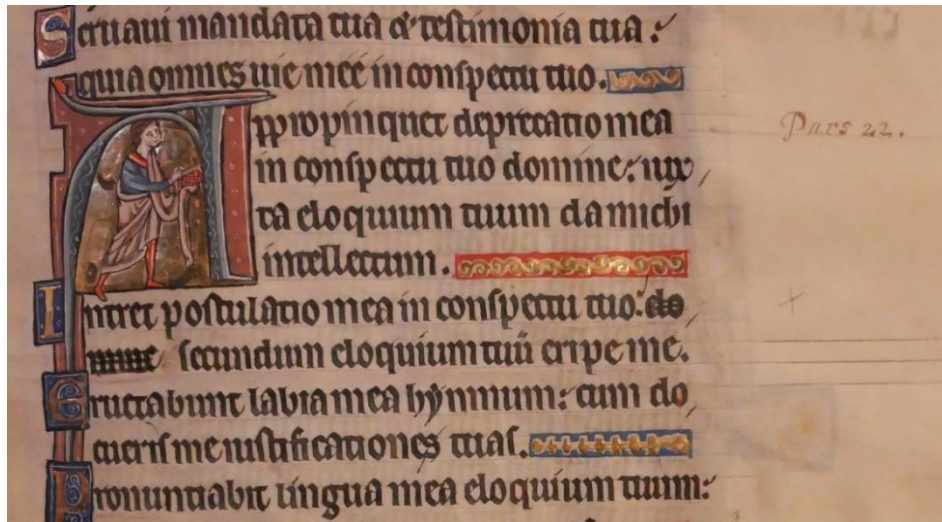 Seruaui mandata tua & testimonia tua:
quia omnes uie mee in conspectu tuo.
Appropinquet deprecatio mea
in conspectu tuo domine: iux
ta eloquium tuum da michi
intellectum.
Pars 22.
Intret postulatio mea in conspectu tuo: do
mine secundum eloquium tuū eripe me.
Eructabunt labia mea hymnum: cum do
cueris me iustificationes tuas.
Pronuntiabit lingua mea eloquium tuum: